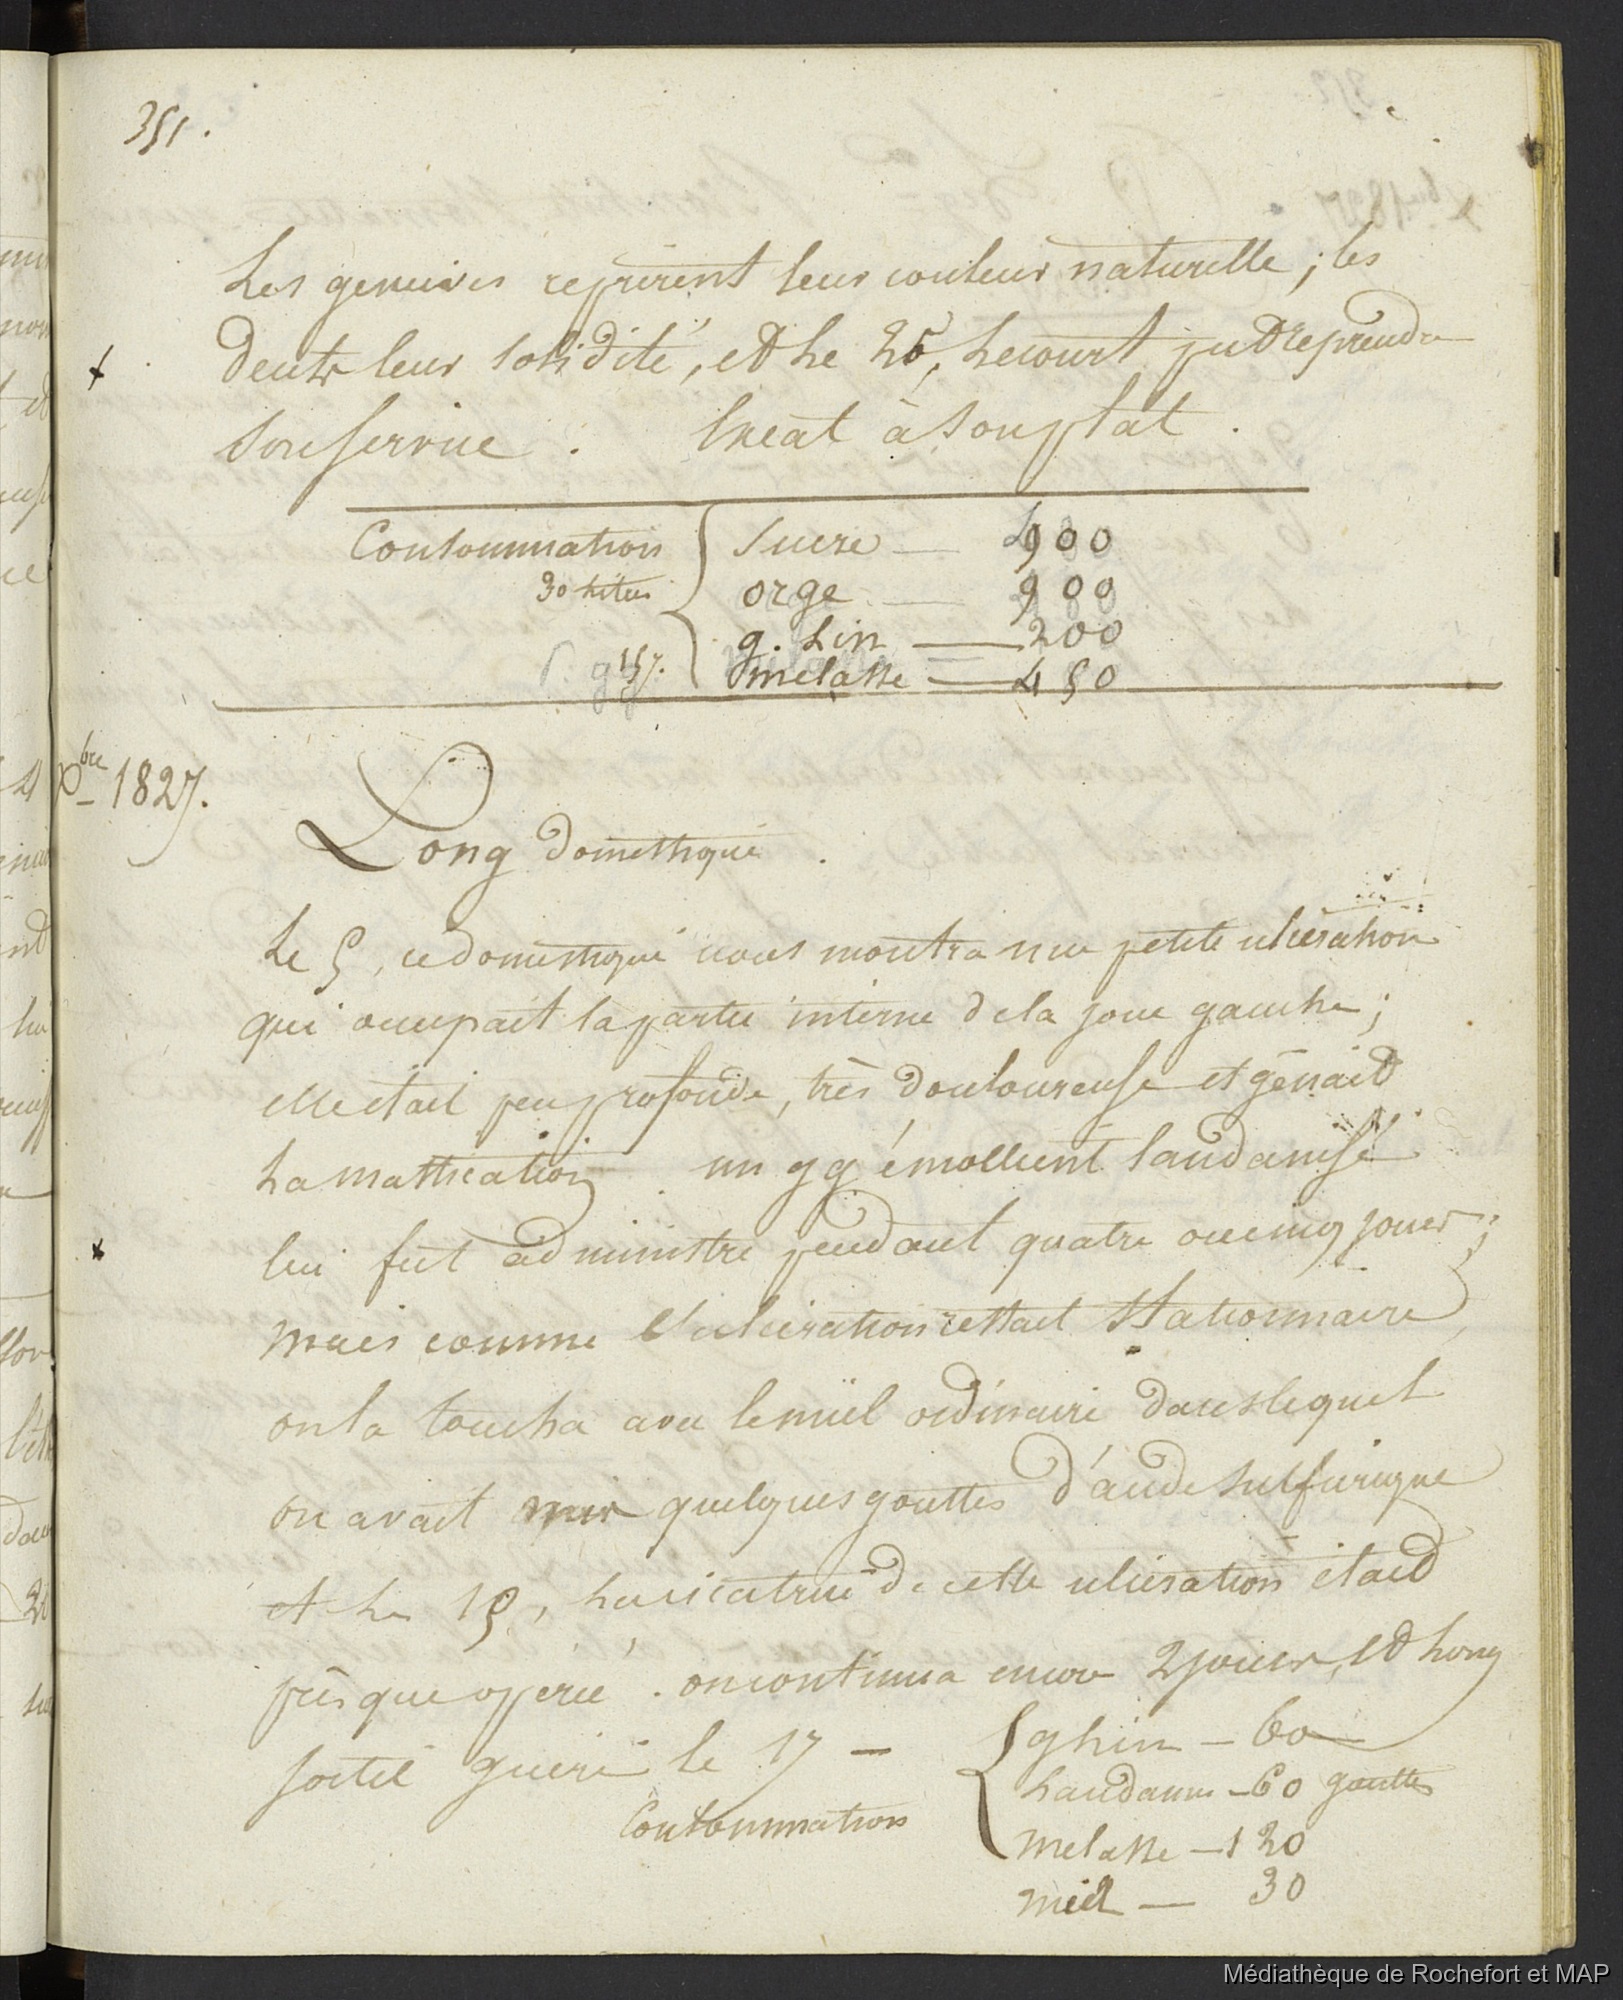 351.
Les gencives reprirent leur couleur naturelle ; les
dents leur solidité, et le 25, Lecourt put reprendre
son service . Exeat à son plat .
Consommation
30 litres
Sucre — 900
orge — 900
g. Lin — 200
melasse — 450
Xbre 1827.
Long domestique .
Le 5, ce domestique nous montra une petite ulcération
qui occupait la partie interne de la joue gauche ;
elle était peu profonde, très douloureuse et gênait
la mastication . un gg émollient laudanisé
lui fut administré pendant quatre ou cinq jours ;
mais comme l'ulcération restait stationnaire,
on la toucha avec le miel ordinaire dans lequel
on avait mis quelques gouttes d'acide sulfurique
et le 15, la cicatrice de cette ulcération était
presque opérée . on continua encore 2 jours, et Long
sortit guéri le 17 —
Consommation
g lin — 60
Laudanum — 60 gouttes
melasse — 120
miel — 30
Médiathèque de Rochefort et MAP